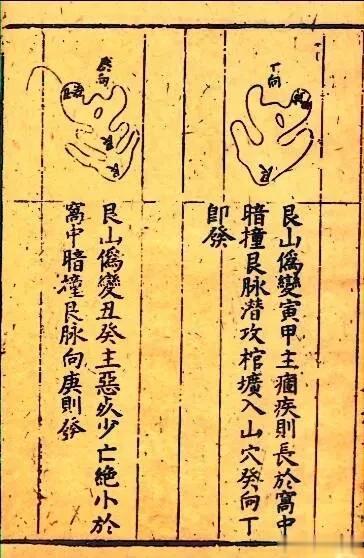 丁向
艮
艮山僞變寅甲主痼疾則長於窩中
暗撞艮脉潜攻棺壙入山穴癸向丁
即發
庚向
艮
艮
艮山僞變丑癸主惡疾少亡絕小於
窩中暗撞艮脉向庚則發